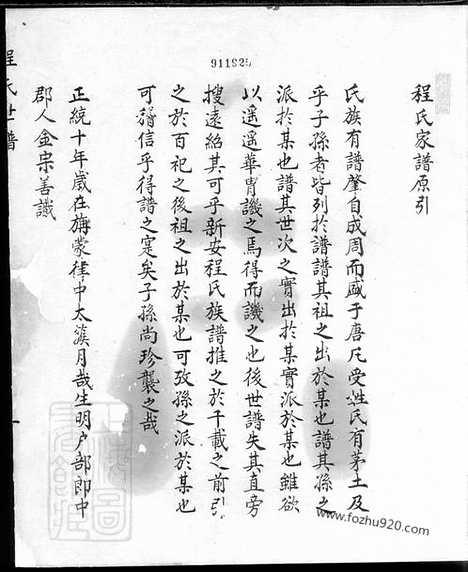 911925
程氏家譜原引
氏族有譜肇自成周而盛于唐凡受姓氏有茅土及
乎子孫者皆列於譜譜其祖之出於某也譜其孫之
派於某也譜其世次之實出於某實派於某也雖欲
以遥遥華胄譏之焉得而譏之也後世譜失其直旁
搜遠紹其可乎新安程氏族譜推之於千載之前引
之於百祀之後祖之出於某也可攷孫之派於某也
可稽信乎得譜之寔矣子孫尚珍襲之哉
正統十年歲在旃蒙律中太簇月哉生明戶部郎中
郡人金宗善識
程氏世譜
一
www.fozhu920.com